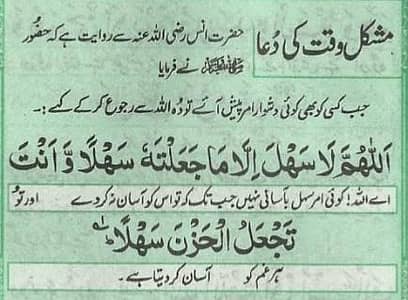 مشکل وقت کی دُعا
حضرت انس رضی اللہ عنہ سے روایت ہے کہ حضُور
ﷺ نے فرمایا
جب کسی کو بھی کوئی دشوار امر پیش آئے تو وُہ اللہ سے رجوع کر کے کہے :۔
اَللّٰهُمَّ لَا سَهْلَ اِلَّا مَا جَعَلْتَهٗ سَهْلًا وَّ اَنْتَ
اے اللہ! کوئی امر سہل بآسانی نہیں جب تک کہ تو اس کو آسان نہ کر دے اور تُو
تَجْعَلُ الْحَزْنَ سَهْلًا
ہر غم کو آسان کر دیتا ہے۔